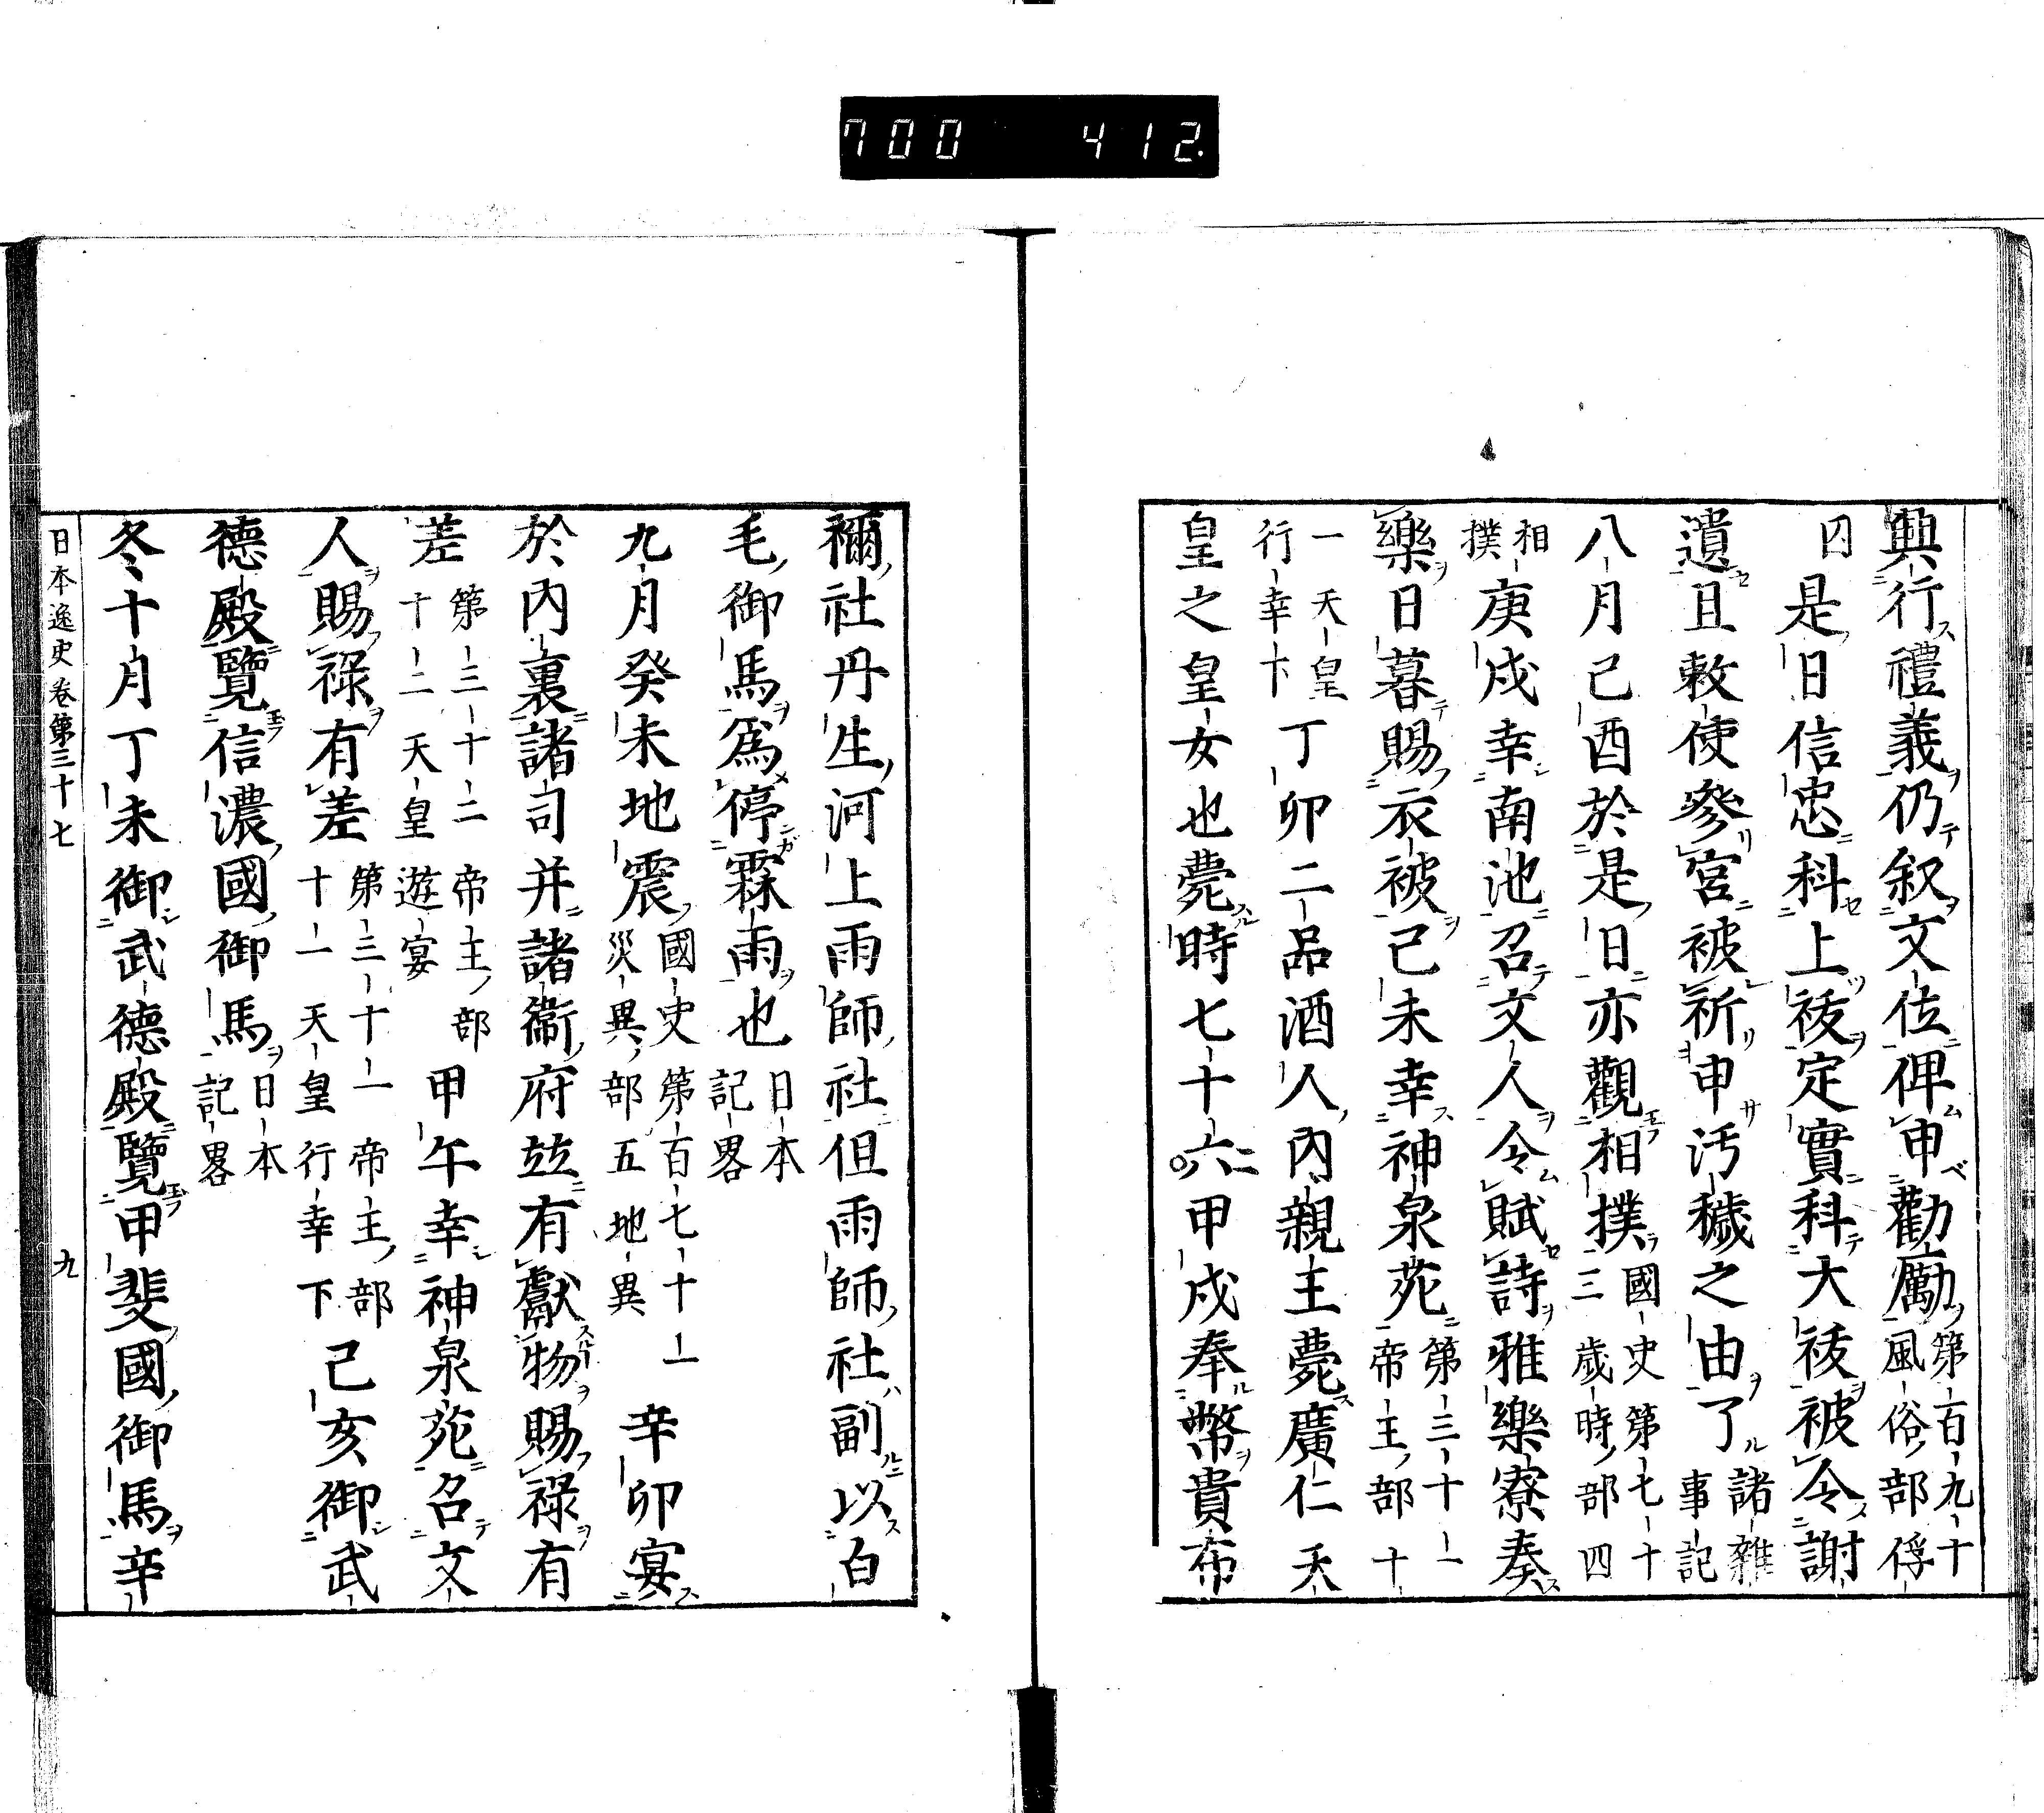 700 412
興行禮義仍叙文位俾申勸厲第一百九十風俗部俘
囚是日信忠科上祓定實科大祓被令謝
遺且敕使參宮被祈申汚穢之由了諸雜事記
八月己酉於是日亦觀相撲國史第七十三歲時部四
相撲庚戌幸南池召文人令賦詩雅樂寮奏
樂日暮賜衣被己未幸神泉苑第三十一帝王部十
一天皇行幸下丁卯二品酒人內親王薨廣仁天
皇之皇女也薨時七十六二甲戌奉幣貴布
禰社丹生河上雨師社但雨師社副以白
毛御馬爲停霖雨也日本記畧
九月癸未地震國史第百七十一災異部五地異辛卯宴
於內裏諸司并諸衞府竝有獻物賜祿有
差第三十二帝王部十二天皇遊宴甲午幸神泉苑召文
人賜祿有差第三十一帝王部十一天皇行幸下己亥御武
德殿覽信濃國御馬日本記畧
冬十月丁未御武德殿覽甲斐國御馬辛
日本逸史卷第三十七 九